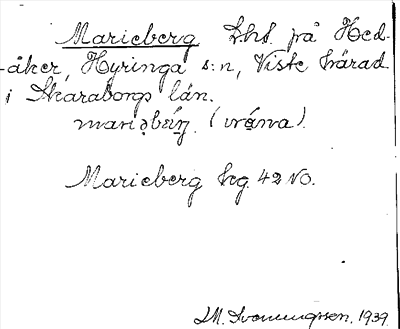 Marieberg lht på Hed-
åker, Hyringa s:n, Viste härad
i Skaraborgs län.
mariəbæ̀rj. (vrǻna).
Marieberg hg. 42 NO.
I.M. Svenungsson. 1939.